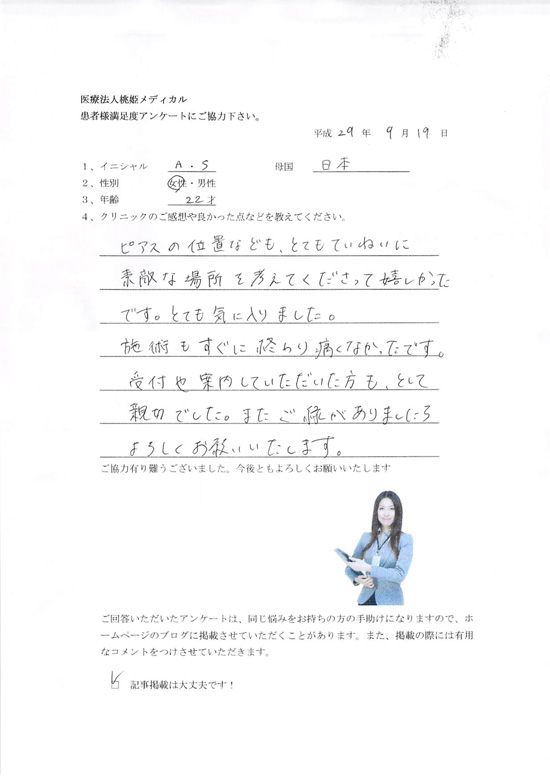 医療法人桃姫メディカル
患者様満足度アンケートにご協力下さい。
平成 29 年 9 月 19 日
1、イニシャル A.S 母国 日本
2、性別 女性・男性
3、年齢 22才
4、クリニックのご感想や良かった点などを教えてください。
ピアスの位置なども、とてもていねいに
素敵な場所を考えてくださって嬉しかった
です。とても気に入りました。
施術もすぐに終わり痛くなかったです。
受付や案内していただいた方も、とても
親切でした。またご縁がありましたら
よろしくお願いいたします。
ご協力有り難うございました。今後ともよろしくお願いいたします
ご回答いただいたアンケートは、同じ悩みをお持ちの方の手助けになりますので、ホ
ームページのブログに掲載させていただくことがあります。また、掲載の際には有用
なコメントをつけさせていただきます。
記事掲載は大丈夫です！